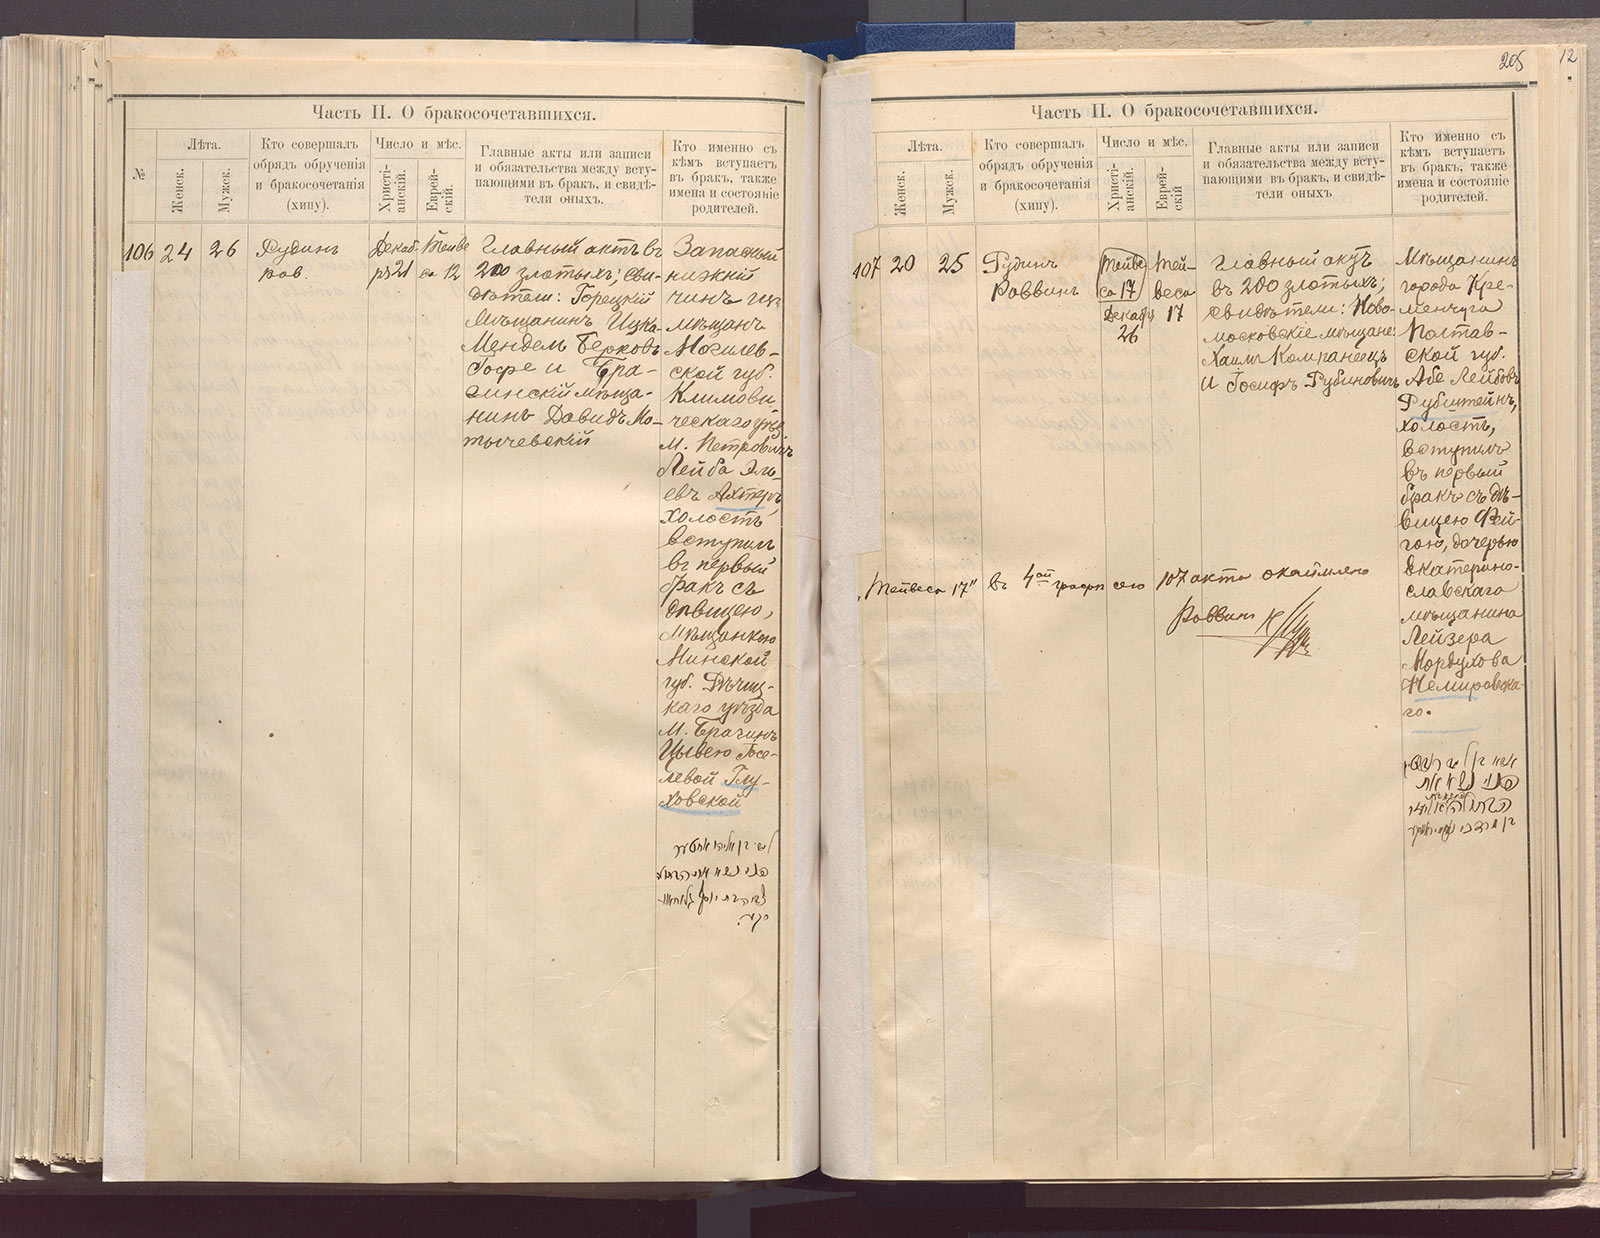 Часть II. О бракосочетавшихся.
№
Лѣта.
Женск.
Мужск.
Кто совершалъ
обрядъ обрученія
и бракосочетанія
(хипу).
Число и мѣс.
Христі-
анскій.
Еврей-
скій.
Главные акты или записи
и обязательства между всту-
пающими въ бракъ, и свидѣ-
тели оныхъ.
Кто именно съ
кѣмъ вступаетъ
въ бракъ, также
имена и состояніе
родителей.
106
24
26
Рудинъ
рав.
Декаб-
ря 21
Тейве
са 12
Главный актъ въ
200 злотыхъ; сви-
дѣтели: Горецкій
мѣщанинъ Ицка-
Мендель Берковъ
Іофе и Бра-
гинскій мѣща-
нинъ Давидъ Мо-
тычевскій
Запасный
нижній
чинъ изъ
мѣщанъ
Могилев-
ской губ.
Климови
ческаго уѣз
м. Петровичъ
Лейба Эль-
евъ Ахтеръ,
холостъ
вступилъ
въ первый
бракъ съ
дѣвицею,
мѣщанкою
Минской
губ. Рѣчиц-
каго уѣзда
м. Брагинъ
Цывею Іосе-
левой Глу-
ховской
205
12
Часть II. О бракосочетавшихся.
Лѣта.
Женск.
Мужск.
Кто совершалъ
обрядъ обрученія
и бракосочетанія
(хипу).
Число и мѣс.
Христі-
анскій.
Еврей-
скій
Главные акты или записи
и обязательства между всту-
пающими въ бракъ, и свидѣ-
тели оныхъ.
Кто именно съ
кѣмъ вступаетъ
въ бракъ, также
имена и состояніе
родителей.
107
20
25
Рудинъ
Раввинъ
Тейве
са 17
Декабря
26
Тей-
веса
17
Главный актъ
въ 200 злотыхъ;
свидѣтели: Ново-
московскіе мѣщане:
Хаимъ Компанеецъ
и Іосифъ Рубиновичъ
Мѣщанинъ
города Кре-
менчуга
Полтав-
ской губ.
Абе Лейбовъ
Рубштейнъ,
холостъ,
вступилъ
въ первый
бракъ съ дѣ-
вицею Фей-
гою, дочерью
Екатерино-
славскаго
мѣщанина
Лейзера
Мордухова
Немировска-
го.
„Тейвеса 17" въ 4ой графѣ сего 107 акта окаймлено
Раввинъ